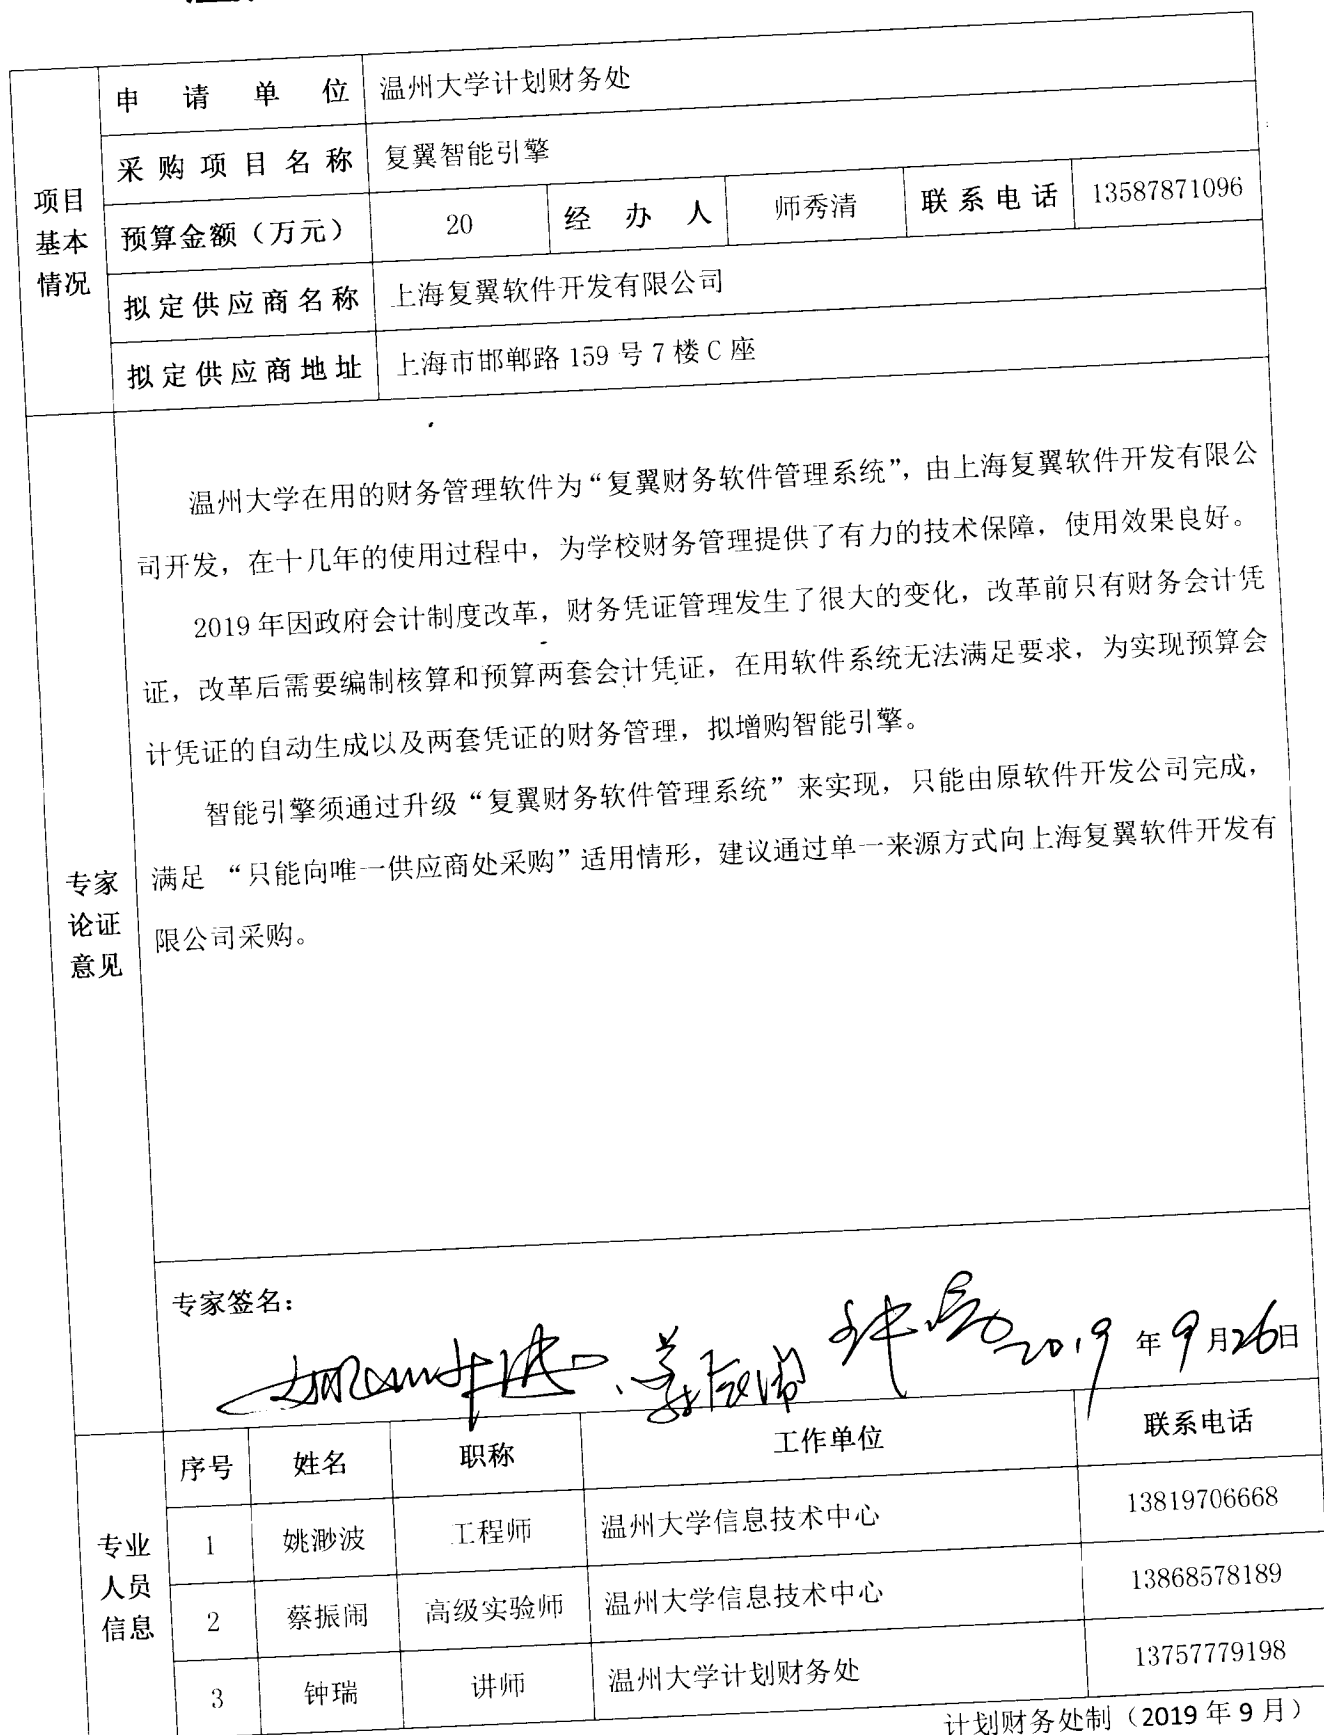 申请单位 温州大学计划财务处
采购项目名称 复翼智能引擎
项目基本情况
预算金额（万元） 20 经办人 师秀清 联系电话 13587871096
拟定供应商名称 上海复翼软件开发有限公司
拟定供应商地址 上海市邯郸路 159 号 7 楼 C 座
温州大学在用的财务管理软件为“复翼财务软件管理系统”，由上海复翼软件开发有限公
司开发，在十几年的使用过程中，为学校财务管理提供了有力的技术保障，使用效果良好。
2019 年因政府会计制度改革，财务凭证管理发生了很大的变化，改革前只有财务会计凭
证，改革后需要编制核算和预算两套会计凭证，在用软件系统无法满足要求，为实现预算会
计凭证的自动生成以及两套凭证的财务管理，拟增购智能引擎。
智能引擎须通过升级“复翼财务软件管理系统”来实现，只能由原软件开发公司完成，
满足 “只能向唯一供应商处采购”适用情形，建议通过单一来源方式向上海复翼软件开发有
限公司采购。
专家论证意见
专家签名：
姚渺波、蔡振闹 钟瑞 2019 年 9 月 26 日
序号 姓名 职称 工作单位 联系电话
专业人员信息
1 姚渺波 工程师 温州大学信息技术中心 13819706668
2 蔡振闹 高级实验师 温州大学信息技术中心 13868578189
3 钟瑞 讲师 温州大学计划财务处 13757779198
计划财务处制（2019 年 9 月）